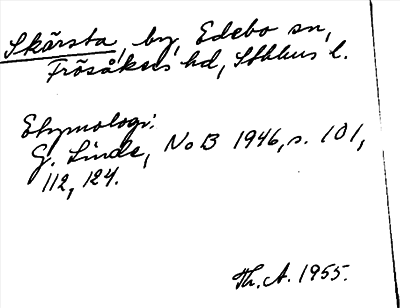 Skärsta, by, Edebo sn,
Frösåkers hd, Sthlms l.
Etymologi:
G. Linde, NoB 1946, s. 101,
112, 124.
Th. A. 1955.